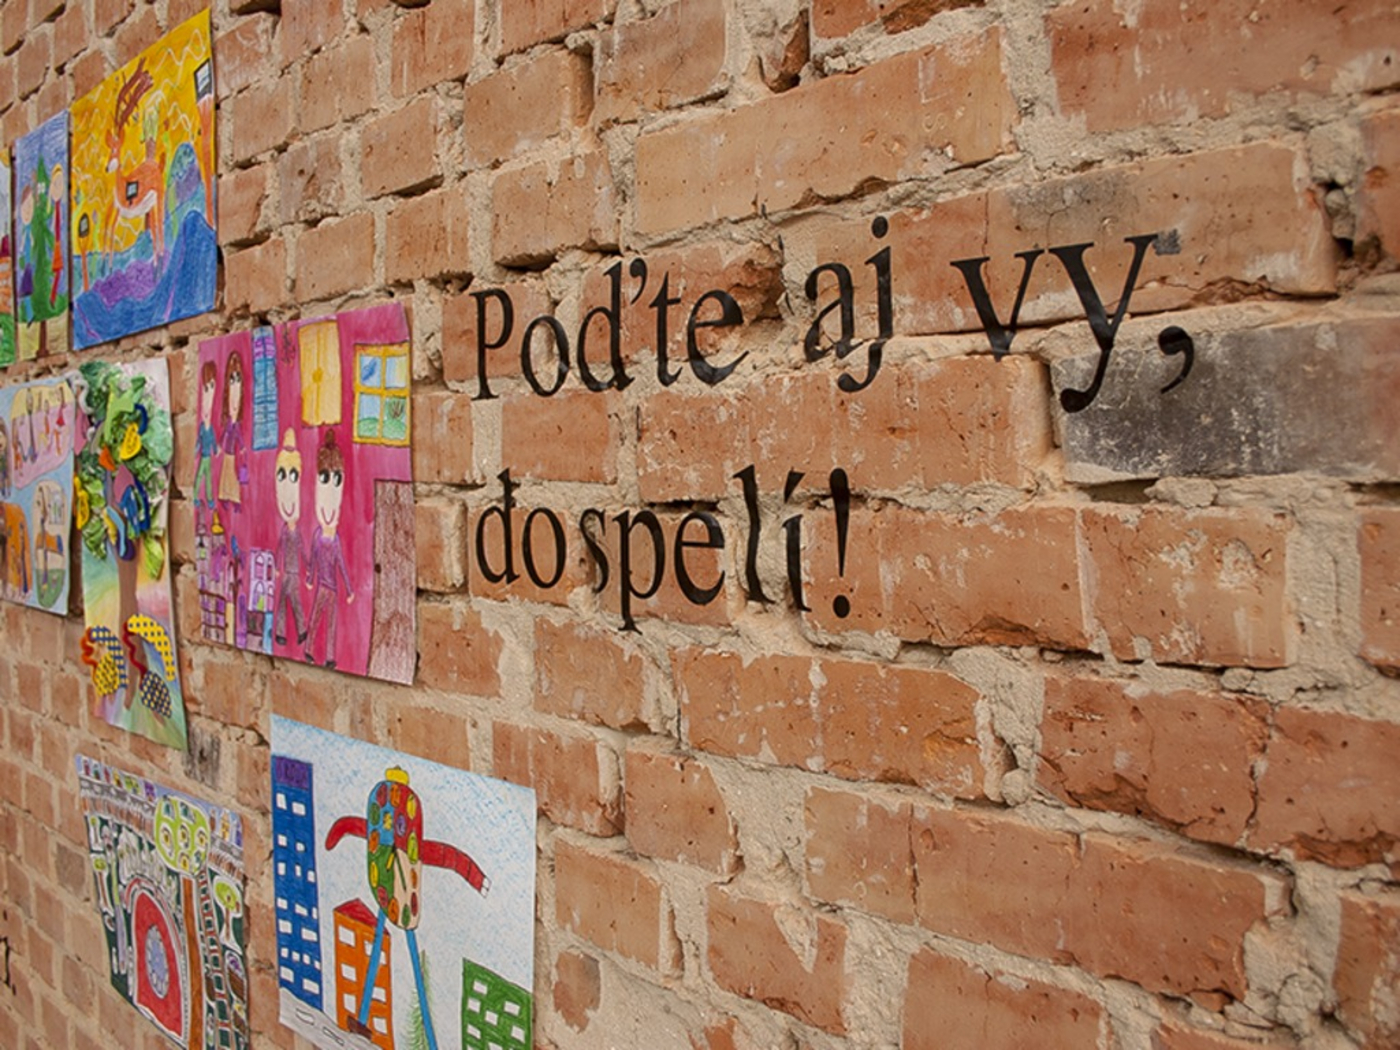 Poďte aj vy,
dospelí!